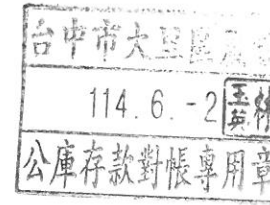 台中市大里區
114.6.-2
公庫存款對帳專用章